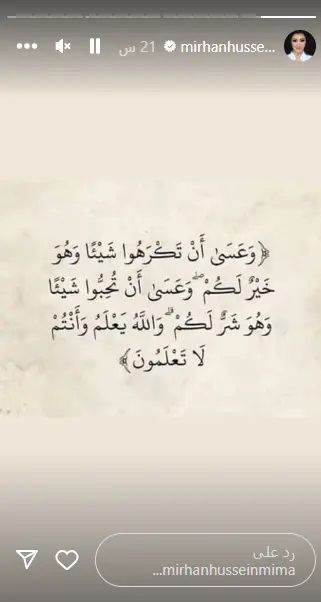 mirhanhusse... 21 س
﴿وَعَسَىٰ أَنْ تَكْرَهُوا شَيْئًا وَهُوَ
خَيْرٌ لَكُمْ ۖ وَعَسَىٰ أَنْ تُحِبُّوا شَيْئًا
وَهُوَ شَرٌّ لَكُمْ ۗ وَاللَّهُ يَعْلَمُ وَأَنْتُمْ
لَا تَعْلَمُونَ﴾
رد على
mirhanhusseinmima...